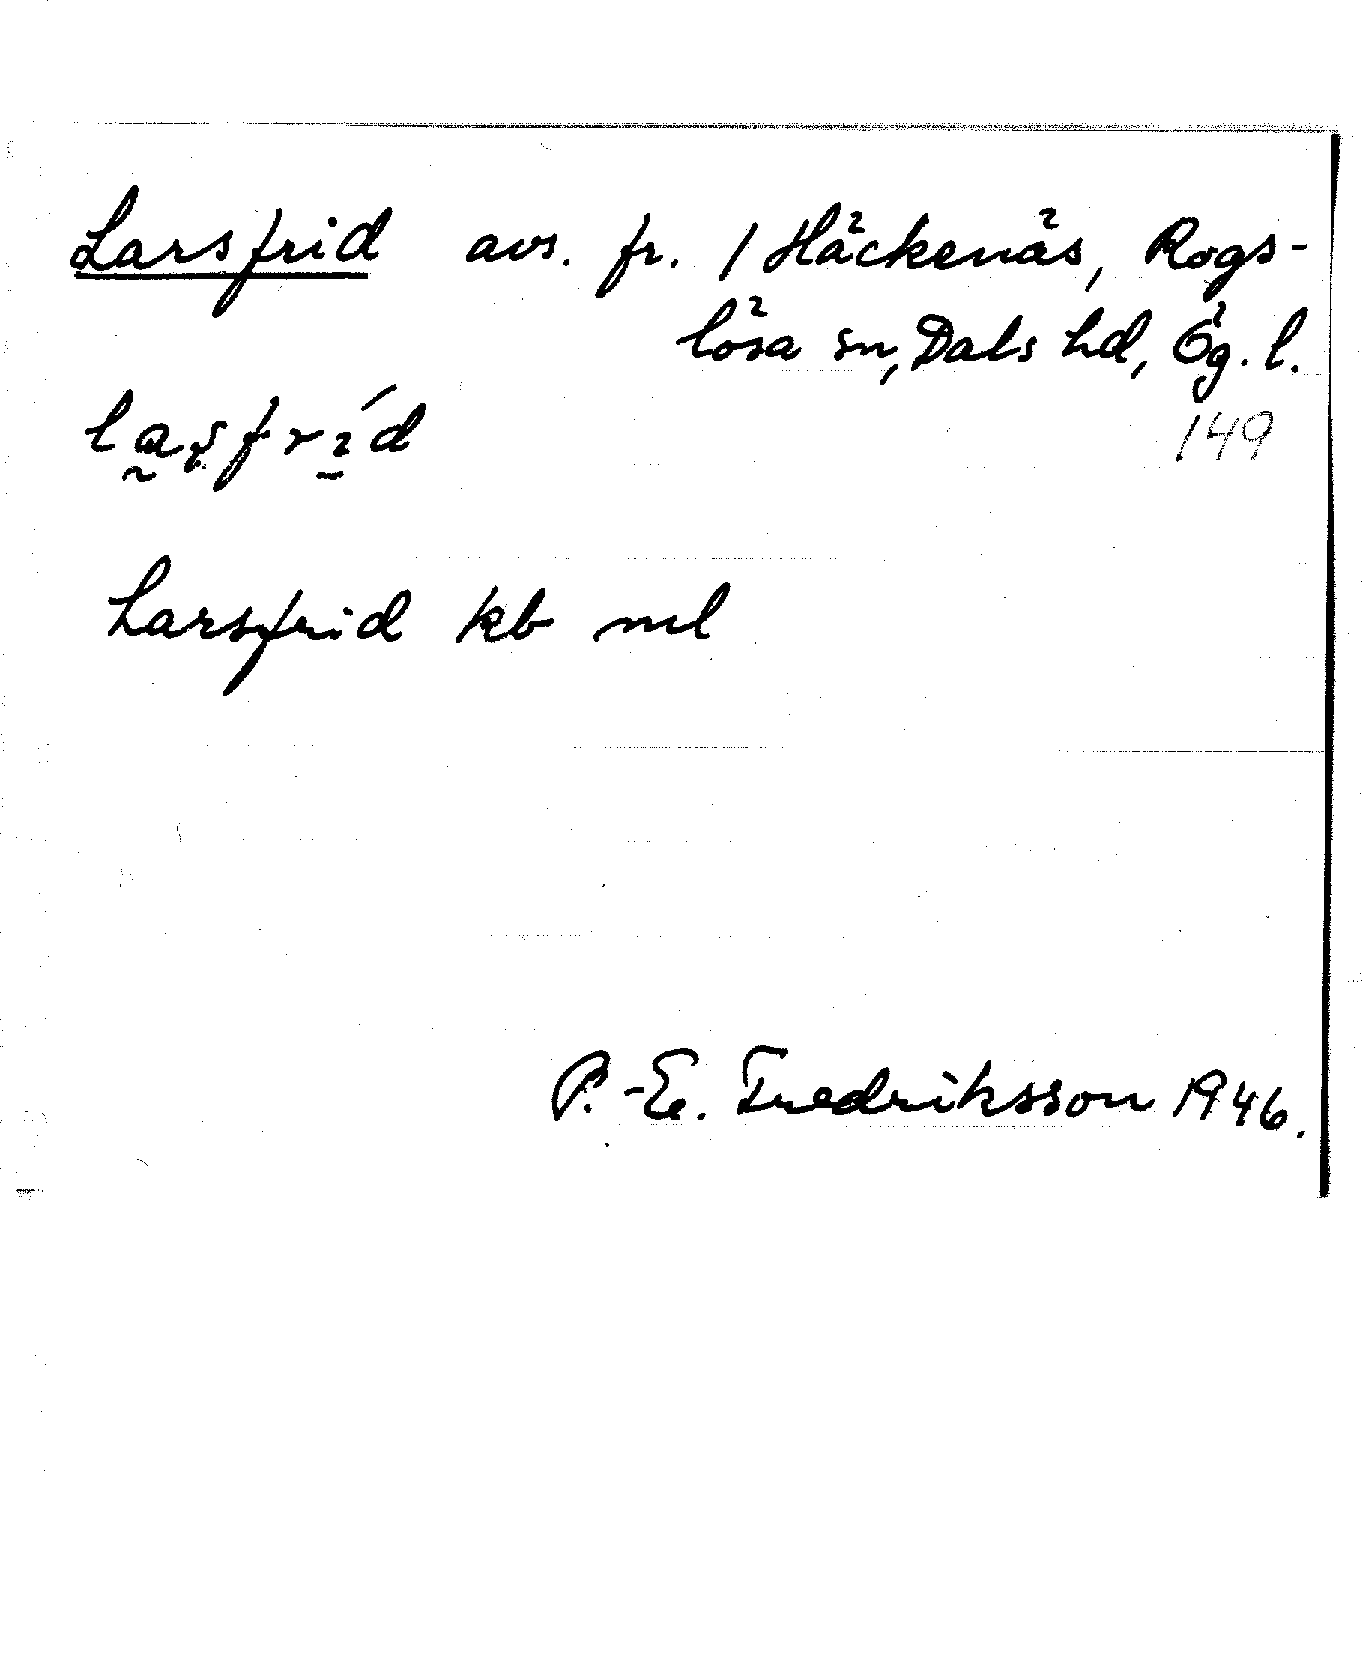 Larsfrid avs. fr. 1 Häckenäs, Rogs-
lösa sn, Dals hd, Ög. l.
149
Larsfrid kb ml
P.-E. Fredriksson 1946.